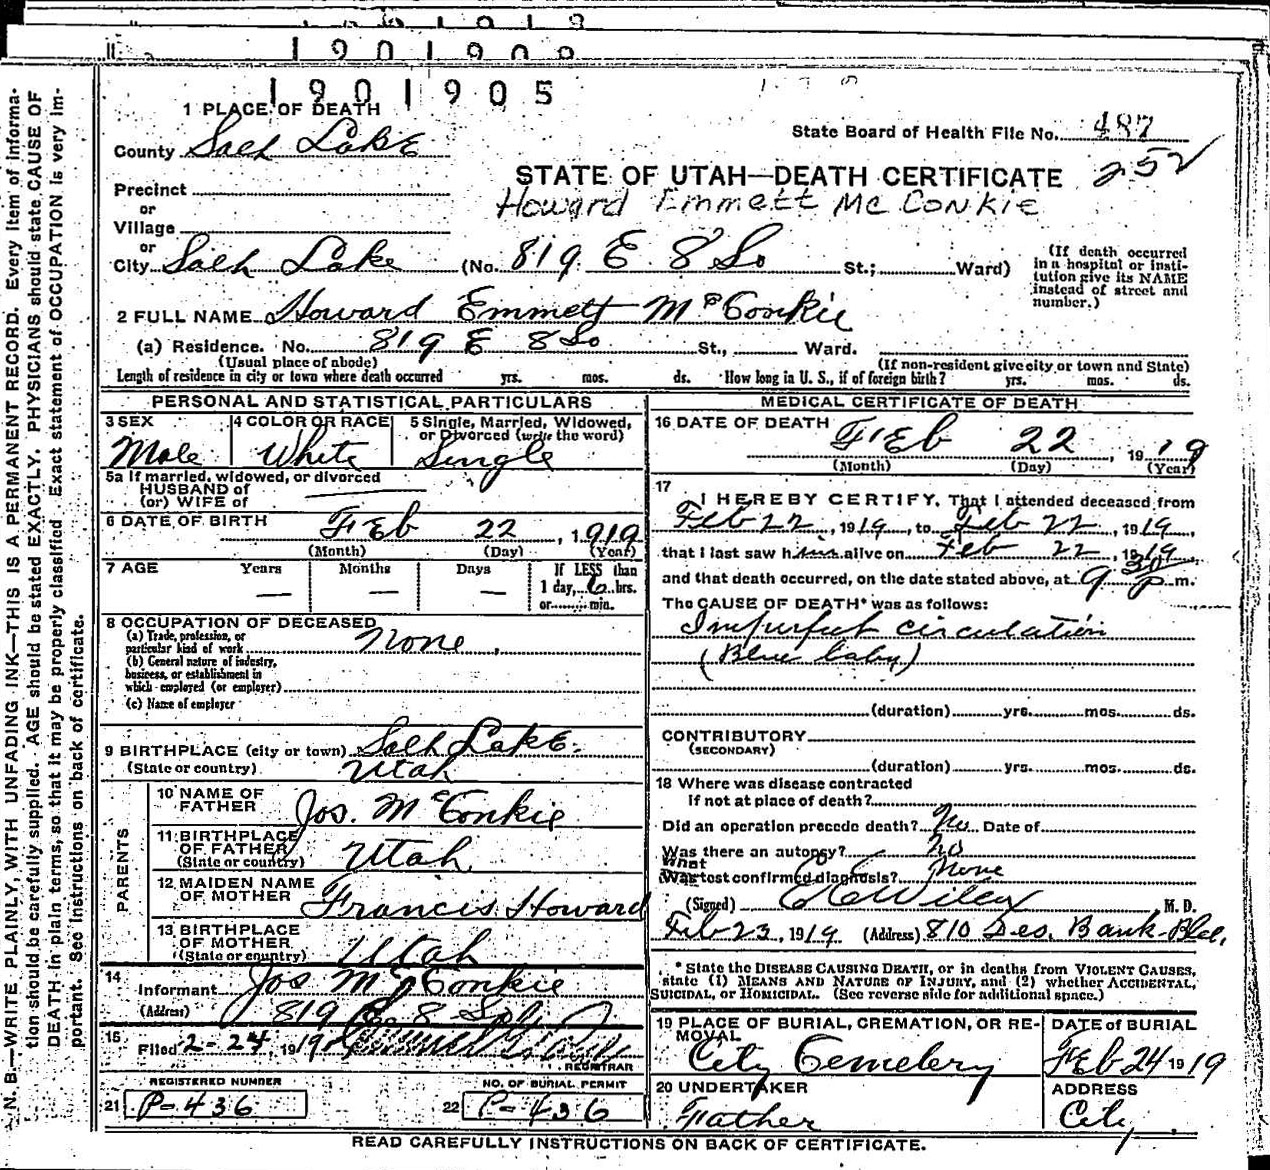 1901909
1901905
1 PLACE OF DEATH
County Salt Lake
State Board of Health File No. 487
252
STATE OF UTAH—DEATH CERTIFICATE
Howard Emmett McConkie
Precinct
or
Village
or
City Salt Lake (No. 819 E 8 So St.; Ward)
(If death occurred in a hospital or institution give its NAME instead of street and number.)
2 FULL NAME Howard Emmett McConkie
(a) Residence. No. 819 E 8 So St., Ward.
(Usual place of abode) (If non-resident give city or town and State)
Length of residence in city or town where death occurred yrs. mos. ds. How long in U. S., if of foreign birth? yrs. mos. ds.
PERSONAL AND STATISTICAL PARTICULARS
3 SEX Male
4 COLOR OR RACE White
5 Single, Married, Widowed, or Divorced (write the word) Single
5a If married, widowed, or divorced
HUSBAND of
(or) WIFE of
6 DATE OF BIRTH Feb 22, 1919
(Month) (Day) (Year)
7 AGE Years — Months — Days — If LESS than 1 day, 6 hrs. or min.
8 OCCUPATION OF DECEASED
(a) Trade, profession, or particular kind of work None
(b) General nature of industry, business, or establishment in which employed (or employer)
(c) Name of employer
9 BIRTHPLACE (city or town) Salt Lake
(State or country) Utah
PARENTS
10 NAME OF FATHER Jos. McConkie
11 BIRTHPLACE OF FATHER (State or country) Utah
12 MAIDEN NAME OF MOTHER Francis Howard
13 BIRTHPLACE OF MOTHER (State or country) Utah
14 Informant Jos McConkie
(Address) 819 E 8 So
15 Filed 2-24, 1919
REGISTRAR
REGISTERED NUMBER
21 P-436
NO. OF BURIAL PERMIT
22 P-436
MEDICAL CERTIFICATE OF DEATH
16 DATE OF DEATH Feb 22, 1919
(Month) (Day) (Year)
17 I HEREBY CERTIFY, That I attended deceased from
Feb 22, 1919, to Feb 22, 1919,
that I last saw him alive on Feb 22, 1919,
and that death occurred, on the date stated above, at 9 30 p m.
The CAUSE OF DEATH* was as follows:
Imperfect circulation
(Blue baby)
(duration) yrs. mos. ds.
CONTRIBUTORY
(SECONDARY)
(duration) yrs. mos. ds.
18 Where was disease contracted
If not at place of death?
Did an operation precede death? No Date of
Was there an autopsy? No
What test confirmed diagnosis? None
(Signed) E C Wilcox M. D.
Feb 23, 1919 (Address) 810 Des. Bank Bld.
* State the DISEASE CAUSING DEATH, or in deaths from VIOLENT CAUSES, state (1) MEANS AND NATURE OF INJURY, and (2) whether ACCIDENTAL, SUICIDAL, or HOMICIDAL. (See reverse side for additional space.)
19 PLACE OF BURIAL, CREMATION, OR REMOVAL City Cemetery
DATE of BURIAL Feb 24 1919
20 UNDERTAKER Father
ADDRESS City
READ CAREFULLY INSTRUCTIONS ON BACK OF CERTIFICATE.
N. B.—WRITE PLAINLY, WITH UNFADING INK—THIS IS A PERMANENT RECORD. Every item of information should be carefully supplied. AGE should be stated EXACTLY. PHYSICIANS should state CAUSE OF DEATH in plain terms, so that it may be properly classified. Exact statement of OCCUPATION is very important. See instructions on back of certificate.